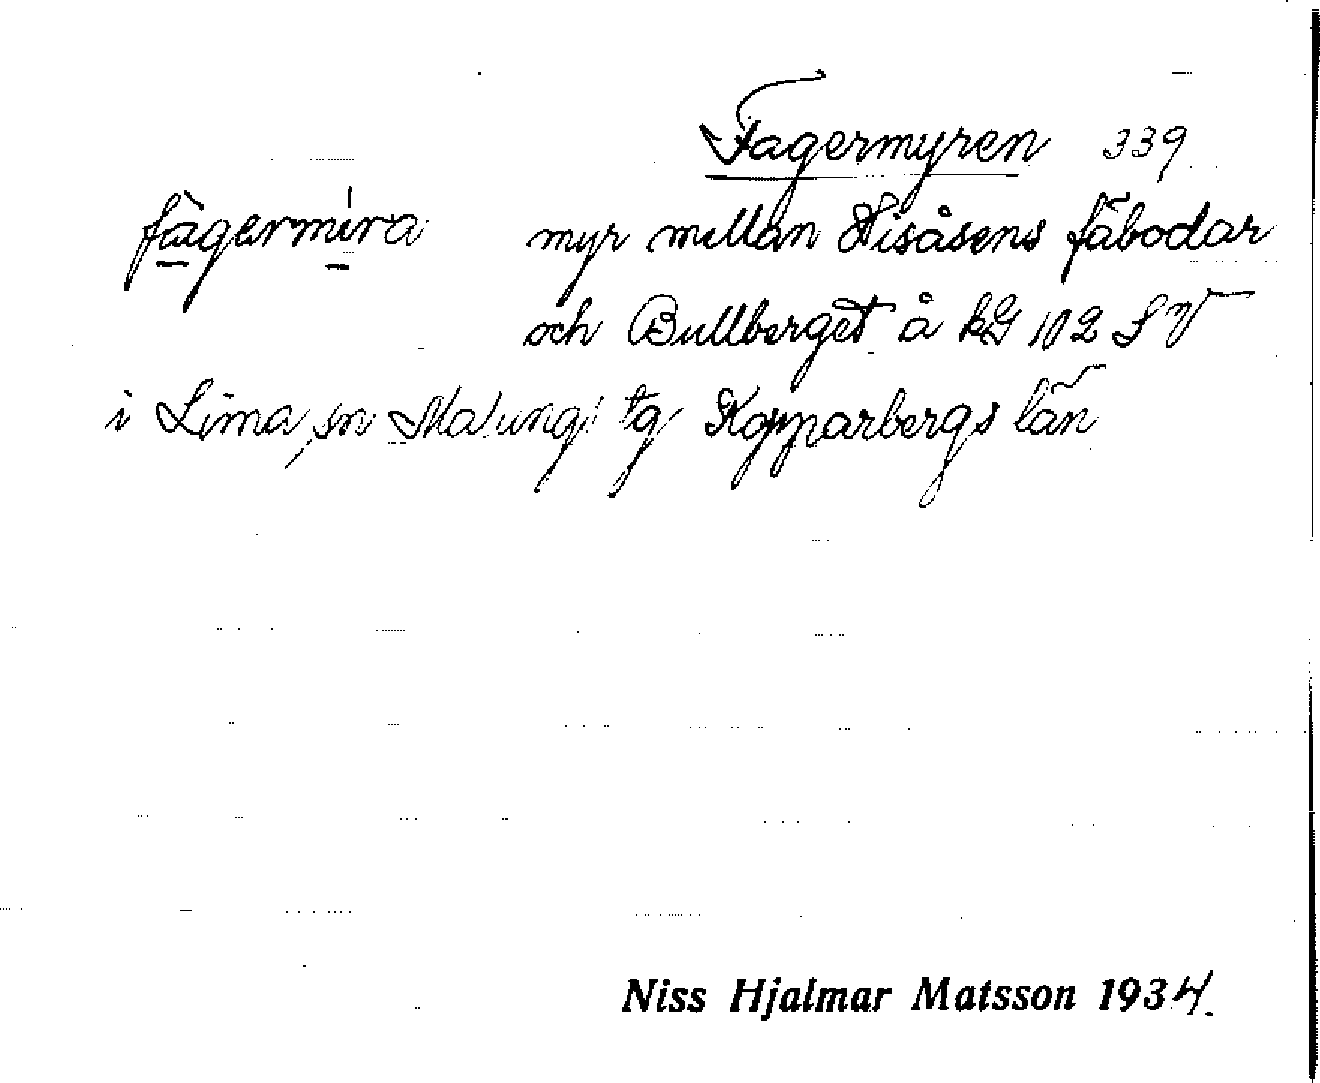 Fagermyren 339
fàgermíra myr mellan Hisåsens fäbodar
och Bullberget å kG 112 SV
i Lima sn Malungs tg Kopparbergs län
Niss Hjalmar Matsson 1934.